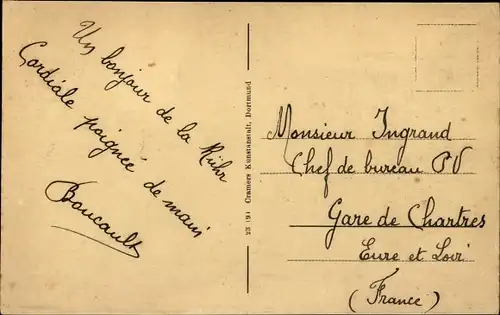 Un bonjour de la Rühr
Cordiale poignée de main
Boucault
23 191 Cramers Kunstanstalt, Dortmund
Monsieur Ingrand
Chef de bureau PV
Gare de Chartres
Eure et Loir
(France)